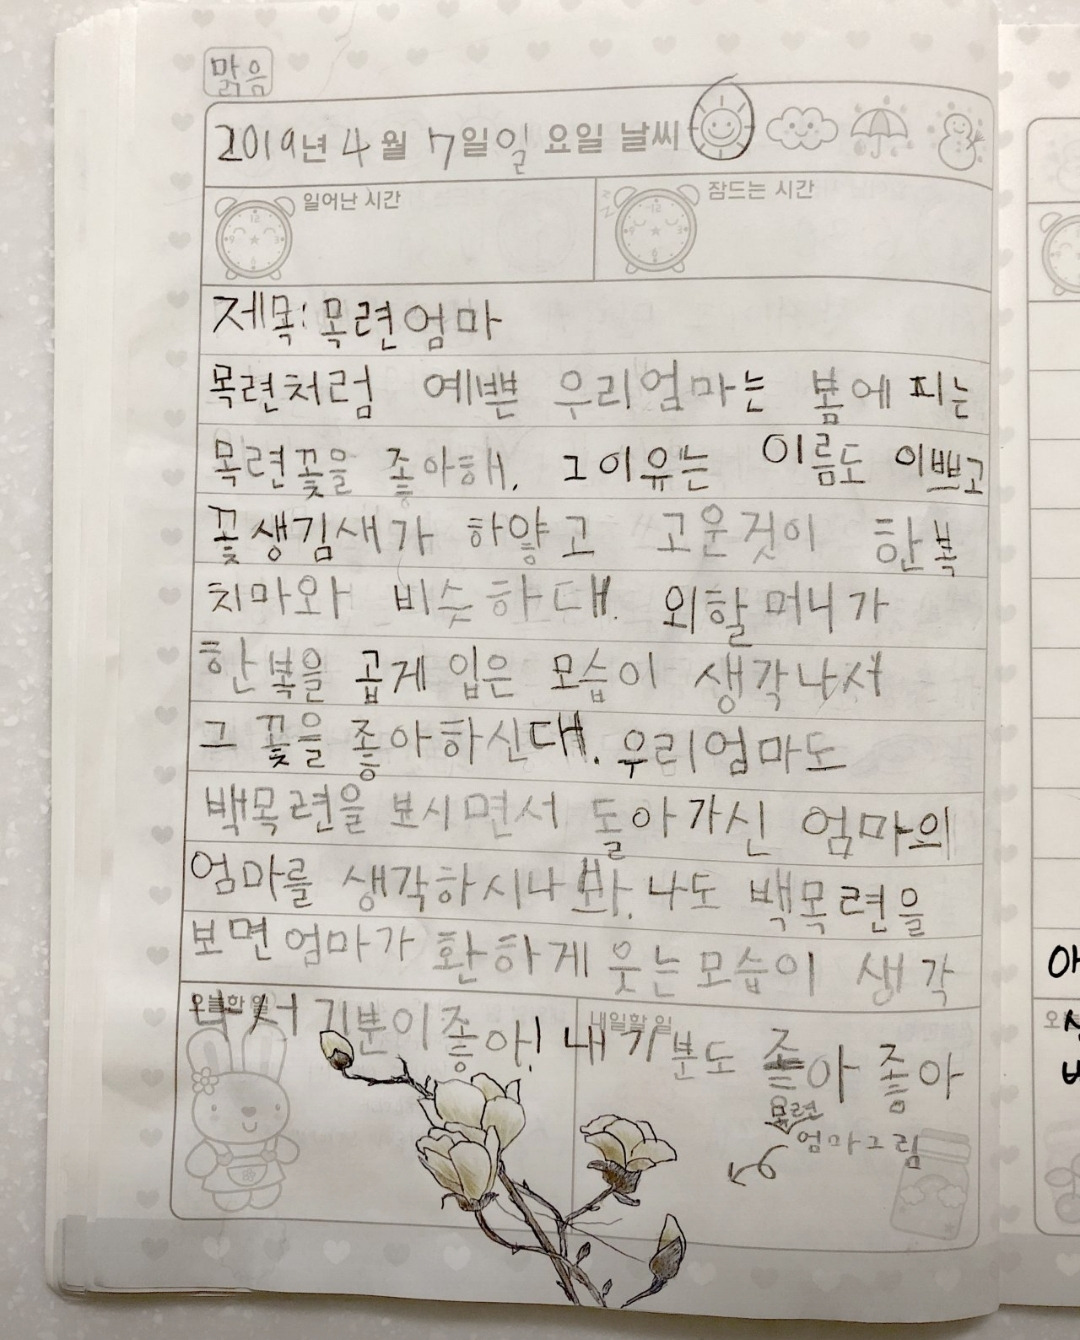 맑음
2019년 4월 7일일 요일 날씨
일어난 시간 잠드는 시간
제목:목련엄마
목련처럼 예쁜 우리엄마는 봄에 피는
목련꽃을 좋아해. 그이유는 이름도 이쁘고
꽃생김새가 하얗고 고운것이 한복
치마와 비슷하대. 외할머니가
한복을 곱게 입은 모습이 생각나서
그 꽃을 좋아하신대. 우리엄마도
백목련을 보시면서 돌아가신 엄마의
엄마를 생각하시나봐. 나도 백목련을
보면 엄마가 환하게 웃는모습이 생각
오늘한 일 내일할 일
나서 기분이좋아! 내기분도 좋아 좋아
목련
엄마그림
아